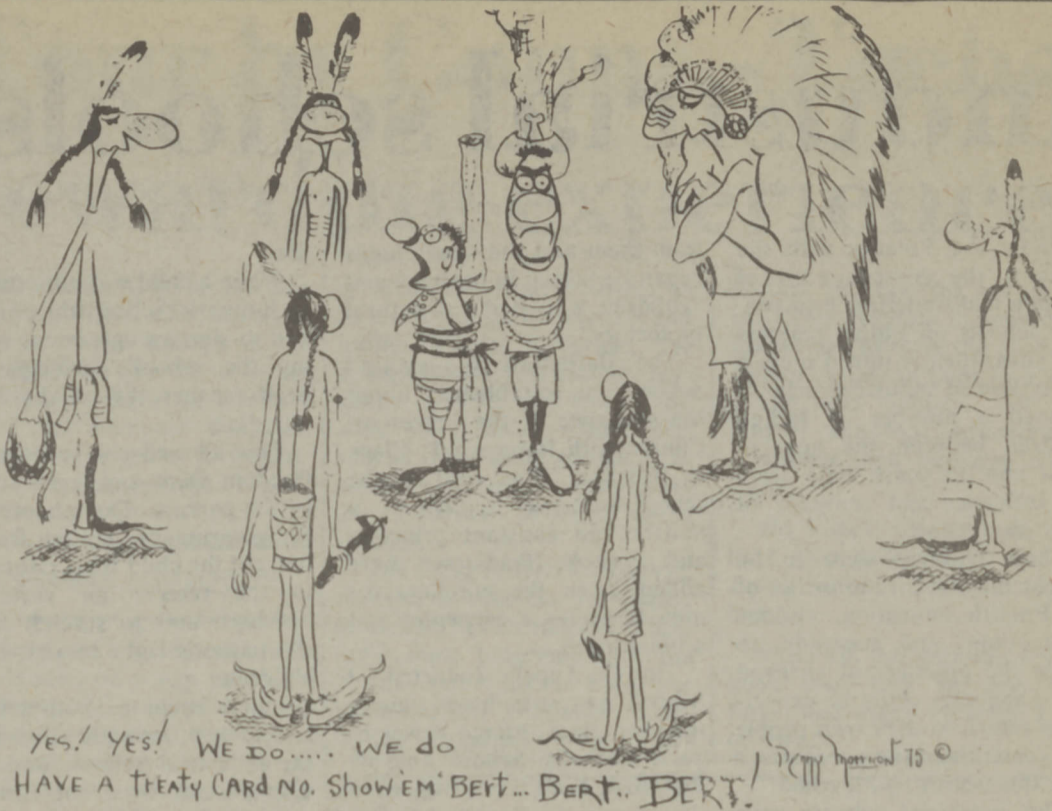 YES! YES! WE DO..... WE do
HAVE A TREATY CARD NO. SHOW 'EM' BERT... BERT.. BERT!
Morrison 75 ©